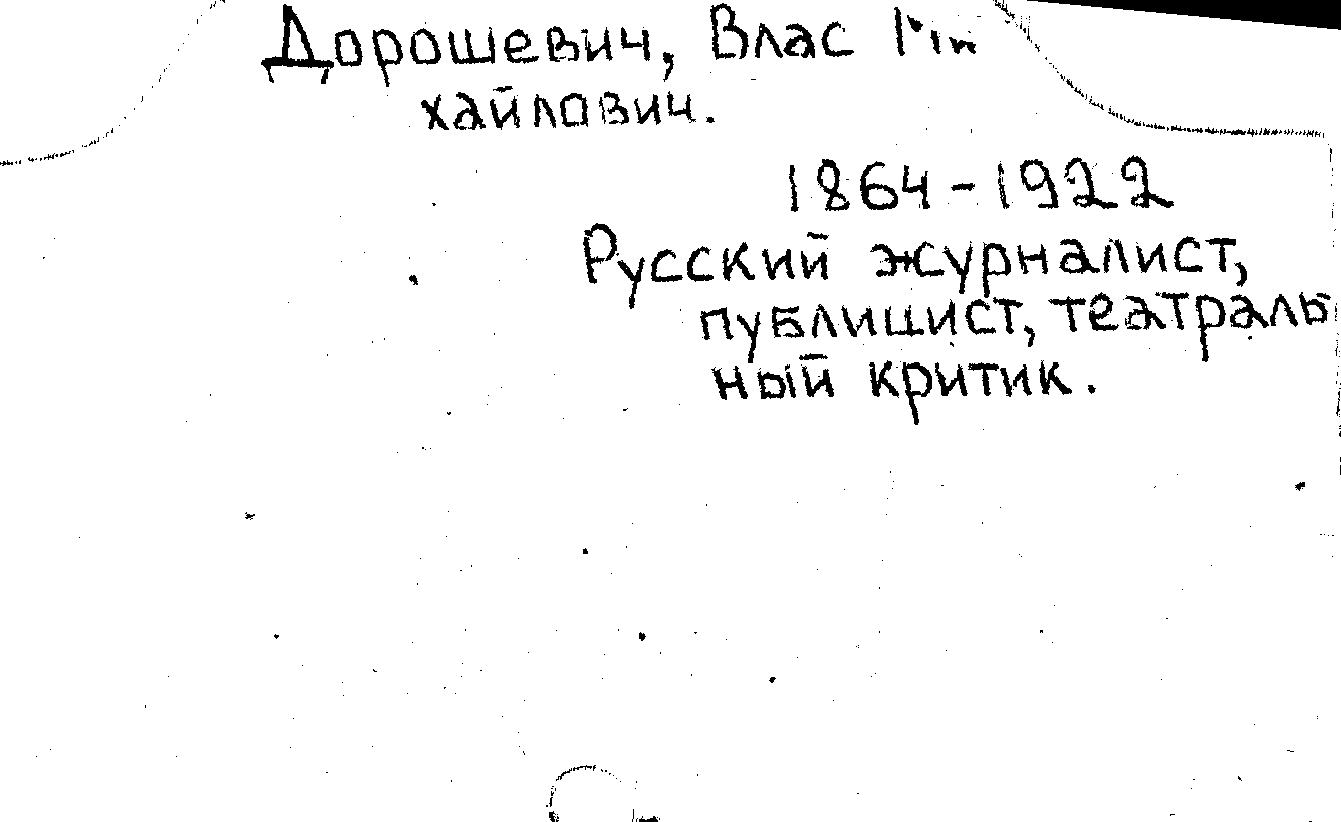 Дорошевич, Влас Ми
хайлович.
1864-1922
Русский журналист,
публицист, театраль
ный критик.